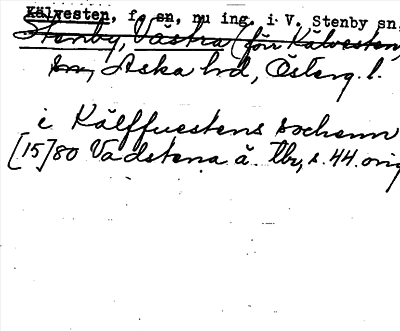 Kälvesten, f. sn, nu ing. i V. Stenby sn,
Stenby, Västra (förr Kälvesten,
sn, Aska hd, Österg. l.
i Kälffuestens sochenn
[15]80 Vadstena ä. tb, s. 44. orig